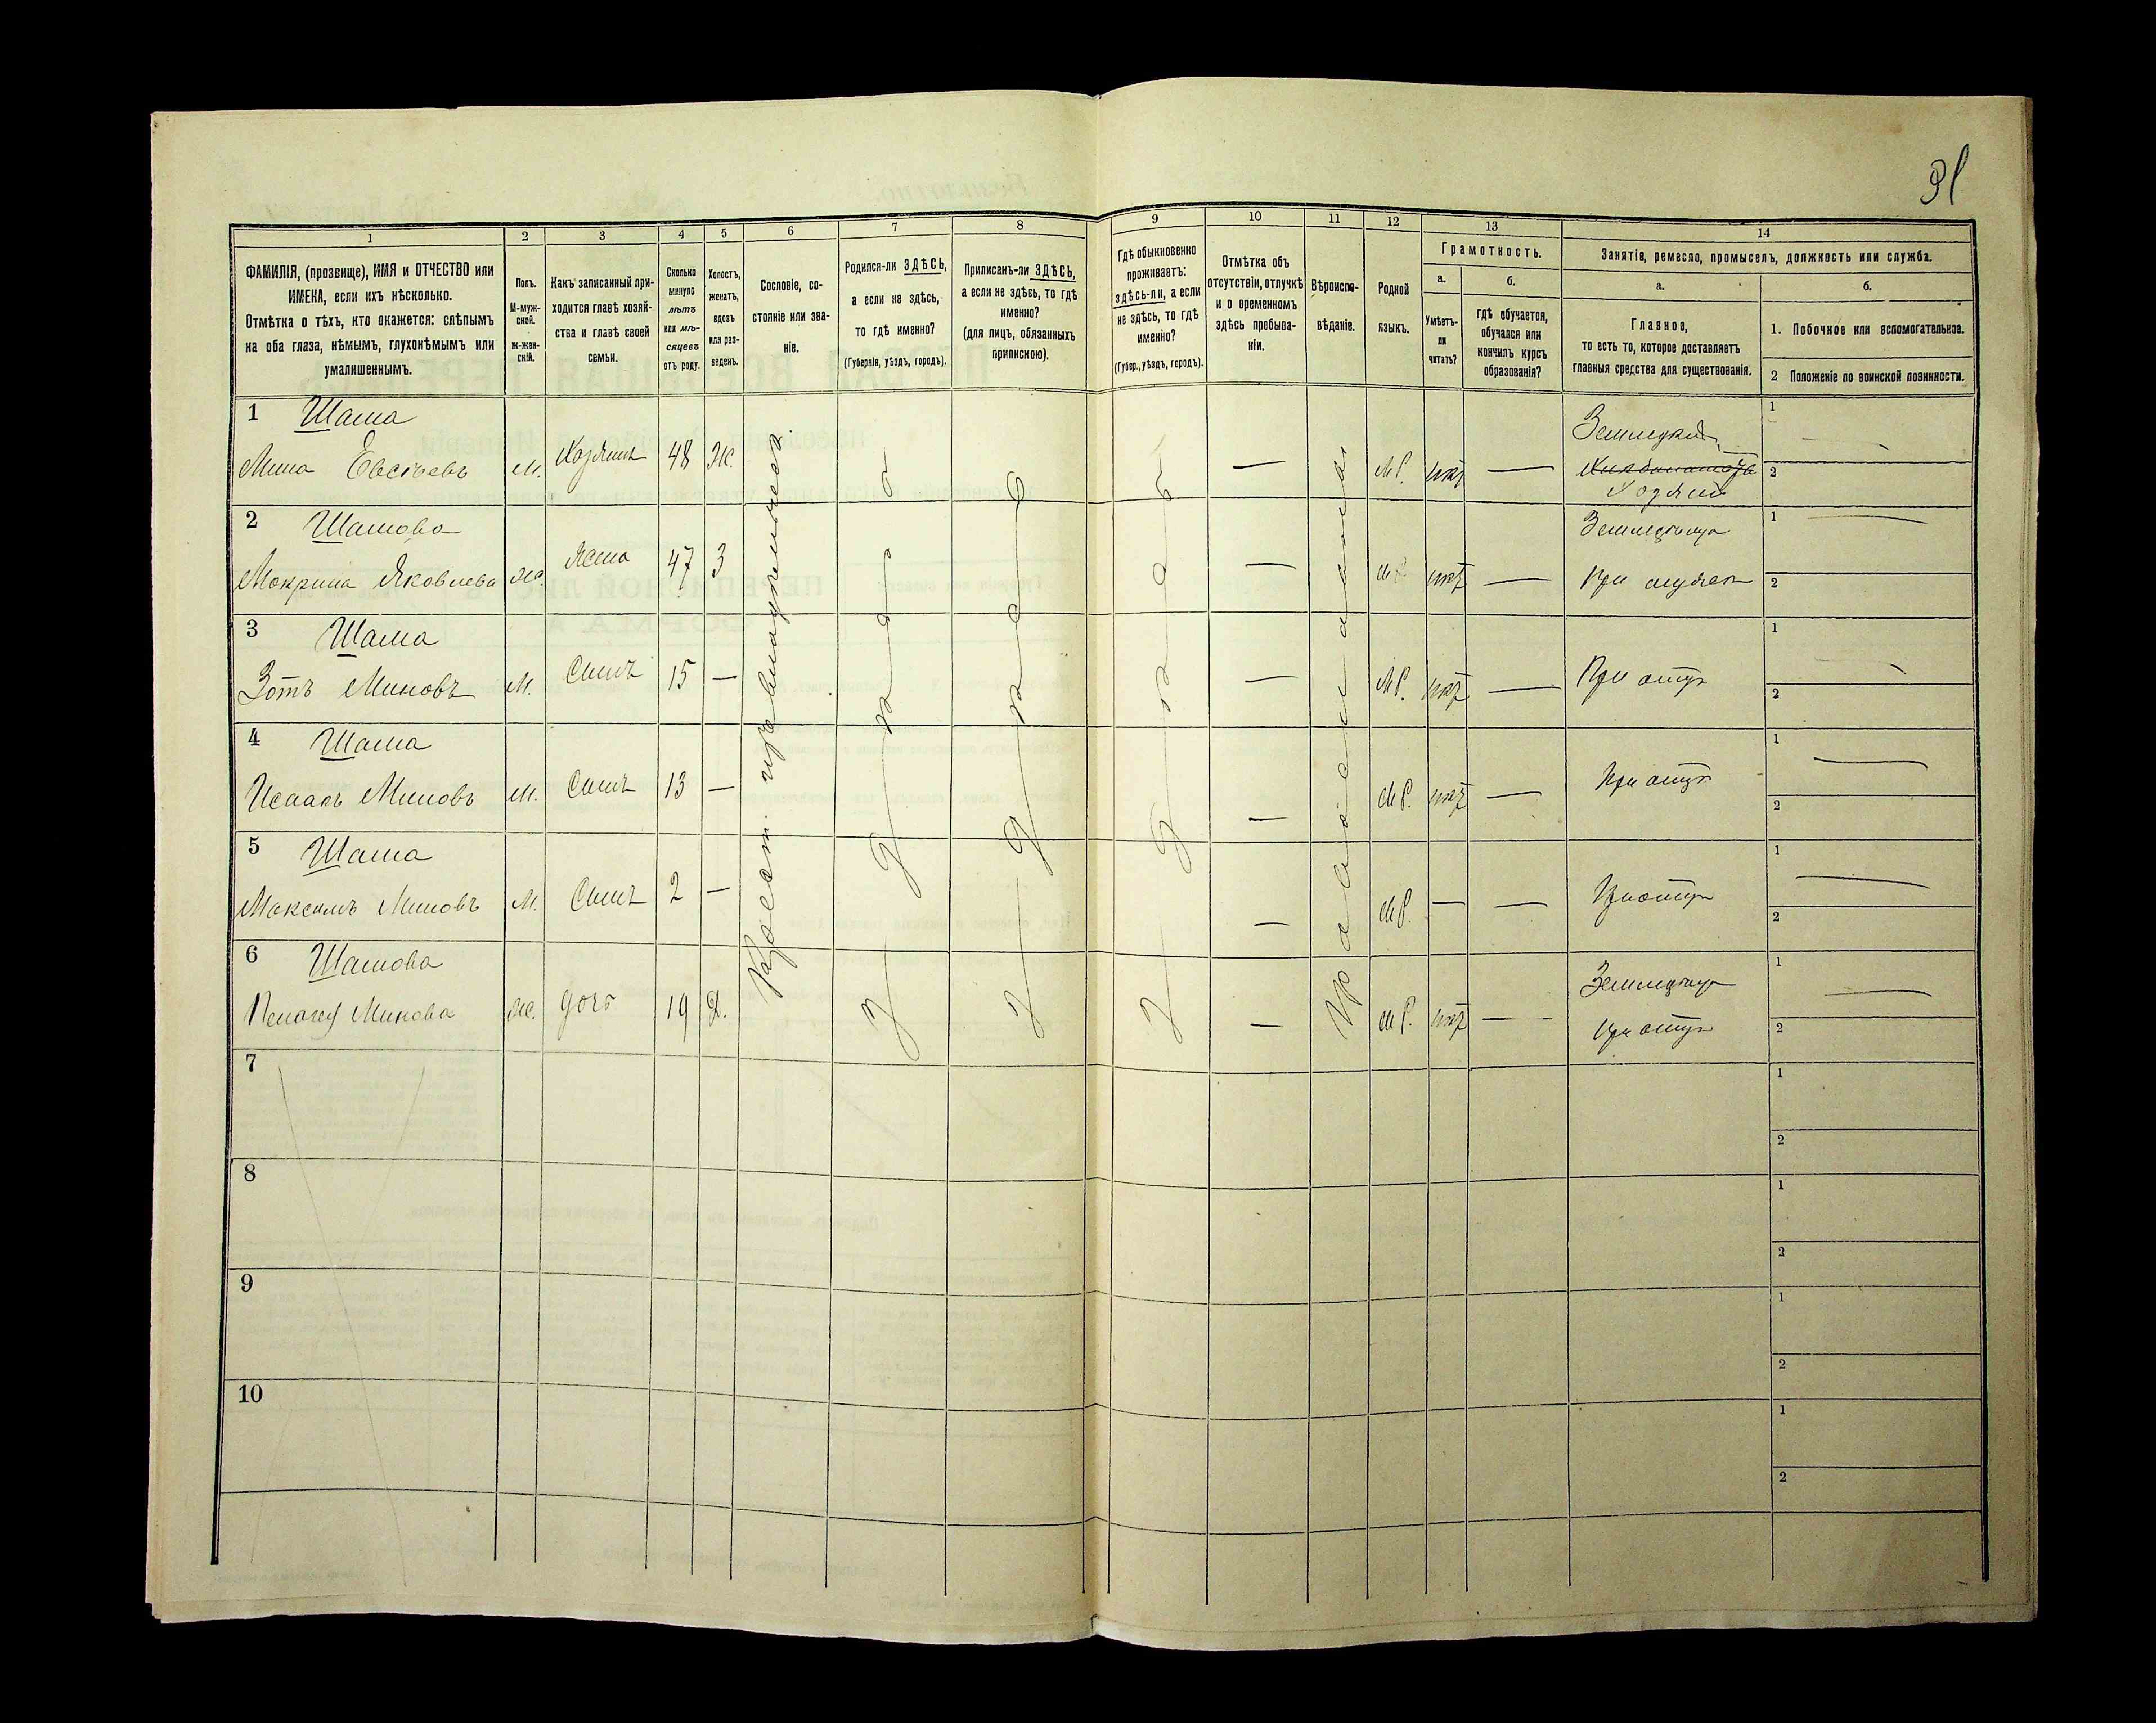 31
1
2
3
4
5
6
7
8
9
10
11
12
13
14
ФАМИЛІЯ, (прозвище), ИМЯ и ОТЧЕСТВО или
ИМЕНА, если ихъ нѣсколько.
Отмѣтка о тѣхъ, кто окажется: слѣпымъ
на оба глаза, нѣмымъ, глухонѣмымъ или
умалишеннымъ.
Полъ.
М-муж-
ской.
ж-жен-
скій.
Какъ записанный при-
ходится главѣ хозяй-
ства и главѣ своей
семьи.
Сколько
минуло
лѣтъ
или мѣ-
сяцевъ
отъ роду.
Холостъ,
женатъ,
вдовъ
или раз-
веденъ.
Сословіе, со-
стояніе или зва-
ніе.
Родился-ли ЗДѢСЬ,
а если не здѣсь,
то гдѣ именно?
(Губернія, уѣздъ, городъ).
Приписанъ-ли ЗДѢСЬ,
а если не здѣсь, то гдѣ
именно?
(для лицъ, обязанныхъ
припискою).
Гдѣ обыкновенно
проживаетъ:
здѣсь-ли, а если
не здѣсь, то гдѣ
именно?
(Губер., уѣздъ, городъ).
Отмѣтка объ
отсутствіи, отлучкѣ
и о временномъ
здѣсь пребыва-
ніи.
Вѣроиспо-
вѣданіе.
Родной
языкъ.
Грамотность.
а.
Умѣетъ-
ли
читать?
б.
гдѣ обучается,
обучался или
кончилъ курсъ
образованія?
Занятія, ремесло, промыселъ, должность или служба.
а.
Главное,
то есть то, которое доставляетъ
главныя средства для существованія.
б.
1. Побочное или вспомогательное.
2 Положеніе по воинской повинности.
1 Шаша
Мина Евсѣевъ м. Хозяинъ 48 Ж. — М.Р. нѣтъ — 1
Хозяинъ 2
2 Шашова
Макрина Яковлева ж. Жена 47 З — М.Р. нѣтъ — 1
При мужѣ 2
3 Шаша
Зотъ Миновъ м. Сынъ 15 — — М.Р. нѣтъ — При отцѣ 1
2
4 Шаша
Исаакъ Миновъ м. Сынъ 13 — — М.Р. нѣтъ — При отцѣ 1
2
5 Шаша
Максимъ Миновъ м. Сынъ 2 — — М.Р. — — При отцѣ 1
2
6 Шашова
Пелагея Минова ж. дочь 19 Д. — М.Р. нѣтъ — При отцѣ 1
2
Здѣсь
Здѣсь
Здѣсь
Православное
7 1
2
8 1
2
9 1
2
10 1
2